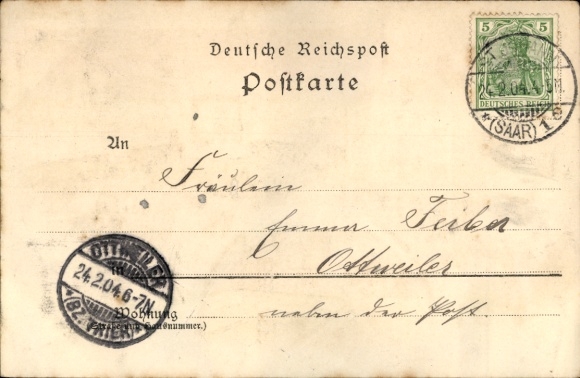 Deutsche Reichspost
Postkarte
5 5
DEUTSCHES REICH
24.2.04.
*(SAAR) 1 e
An
Fräulein
Emma
Ottweiler
neben der Post.
in
Wohnung
(Straße und Hausnummer.)
OTTWEILER
24.2.04.6-7N
*(BZ. TRIER)